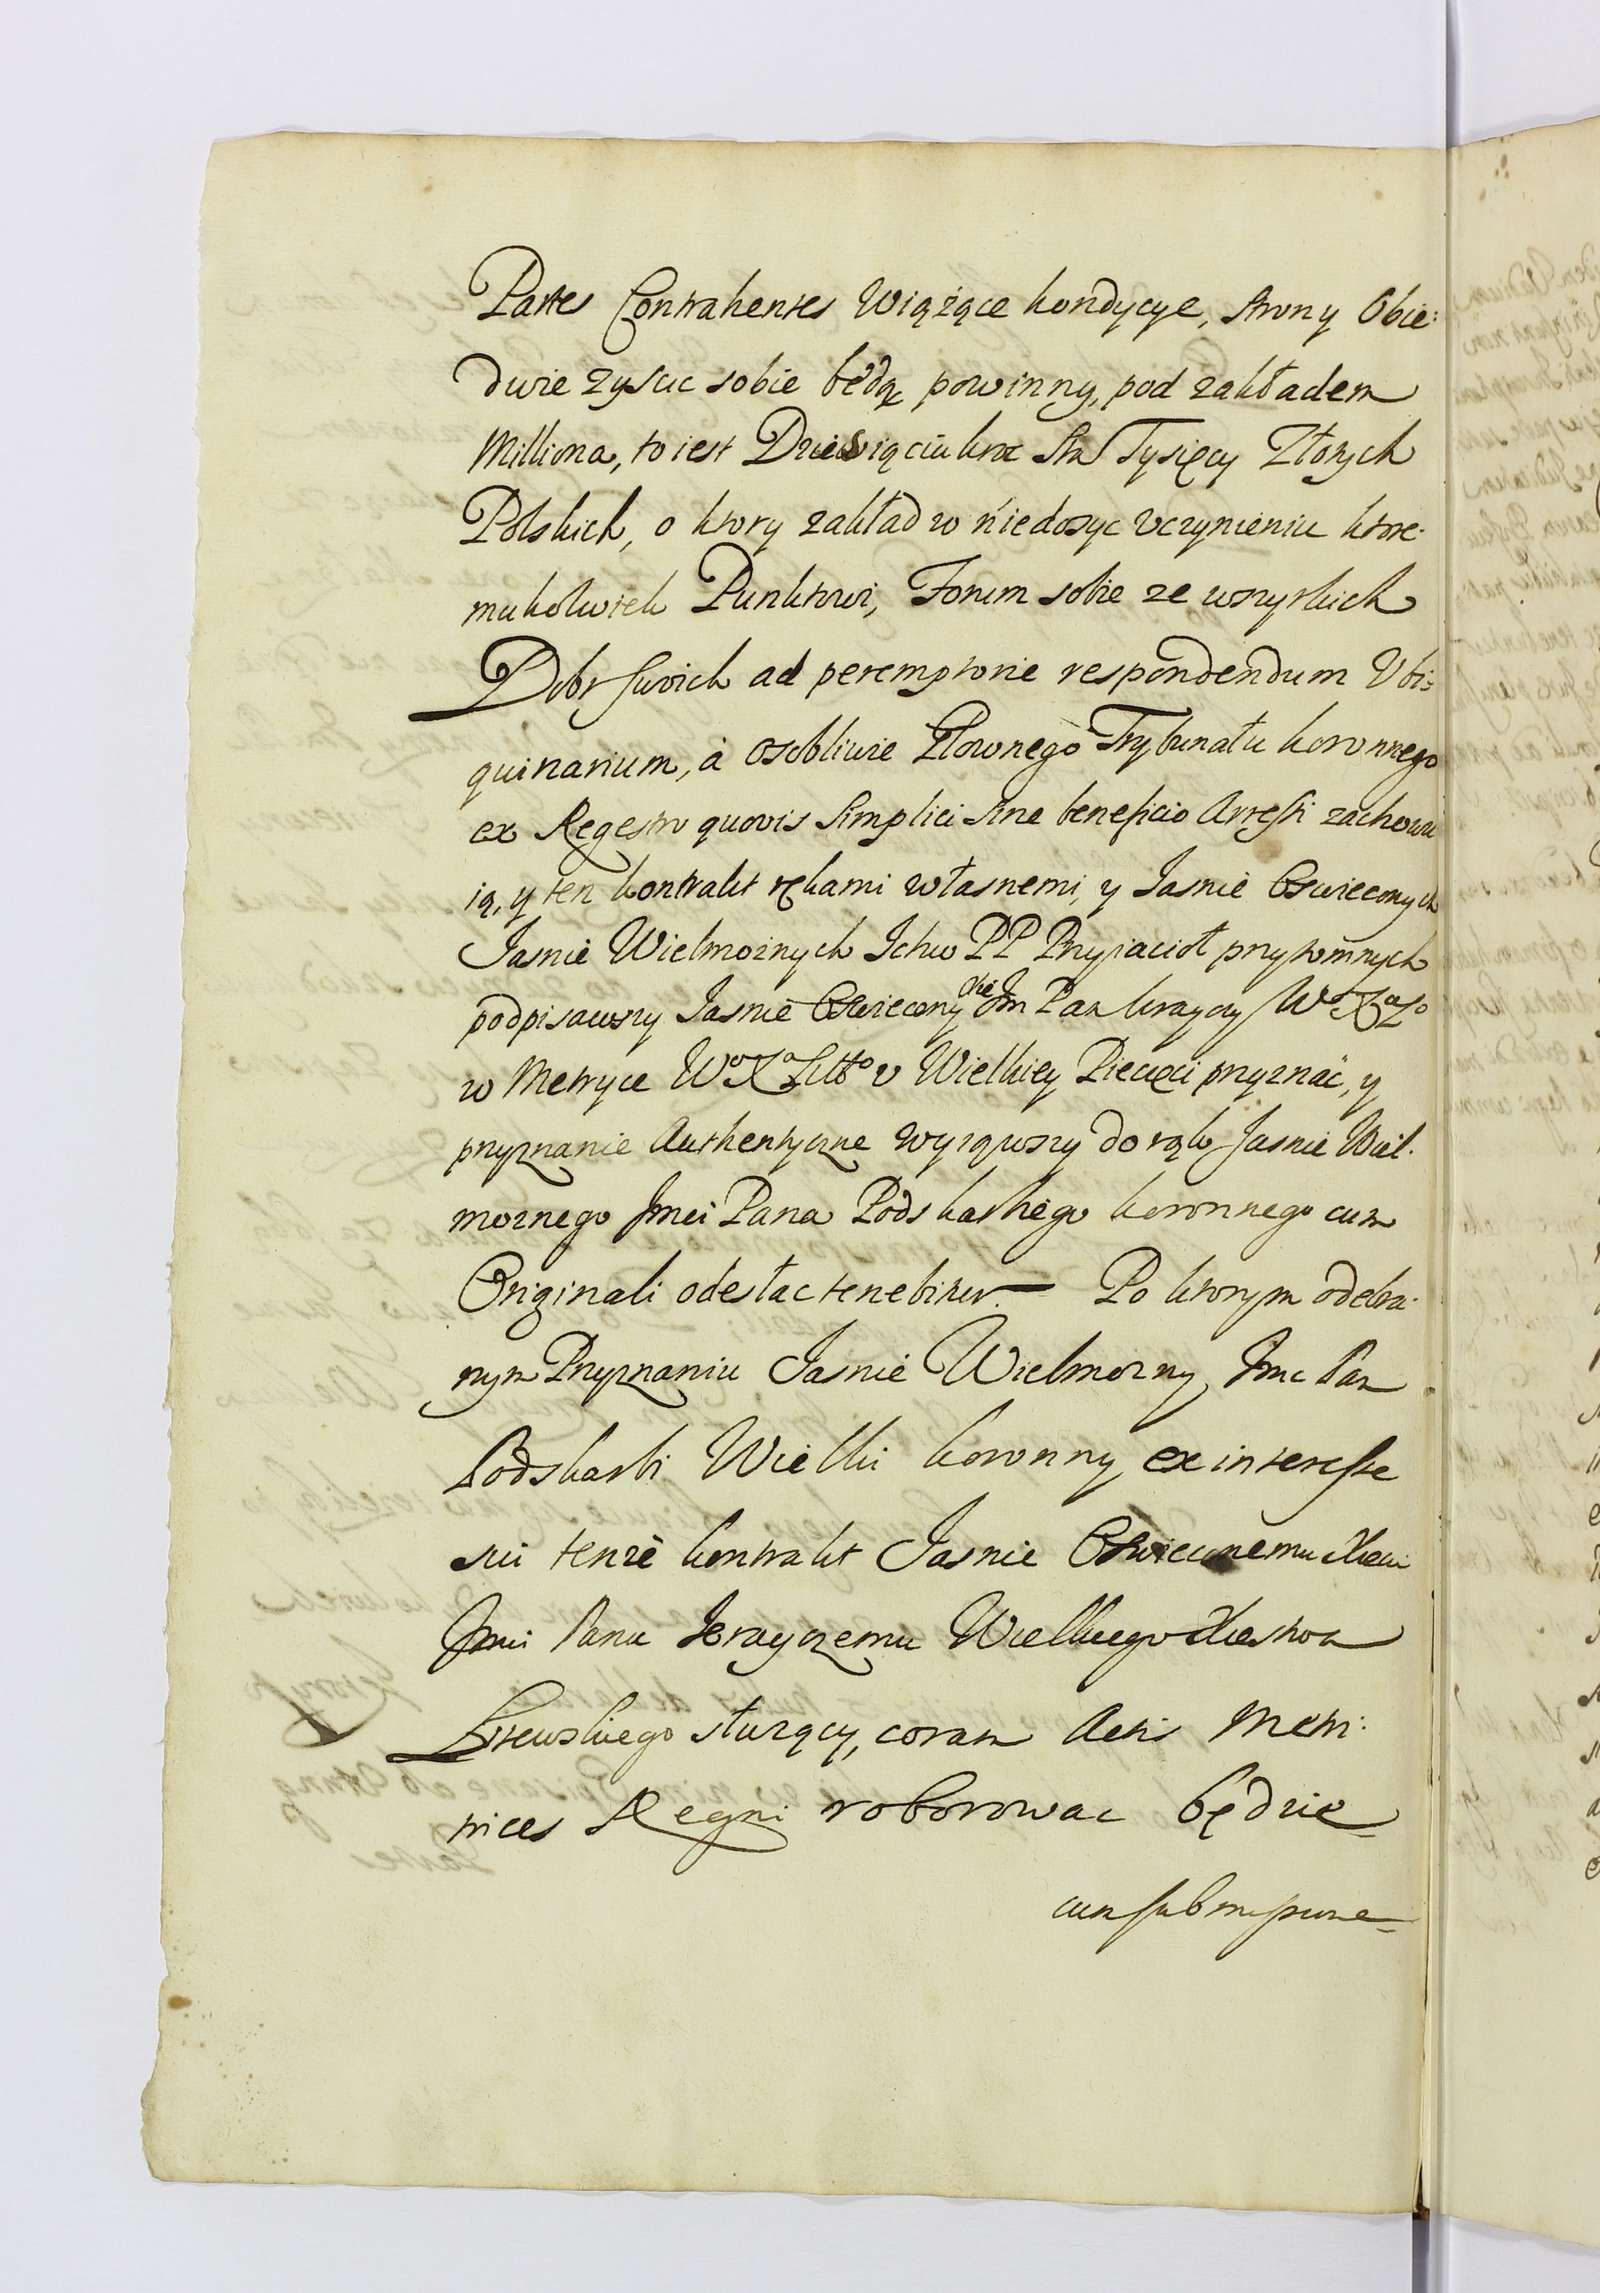 Partes Contrahentes Wiążące kondycye, strony Obie:
dwie zyscic sobie będą powinny, pod zakładem
Milliona, to iest Dziesiąciukroc Sta Tysięcy Złotych
Polskich, o ktory zakład w niedosyc Vczynieniu ktore-
mukolwiek Punktowi, Forum sobie ze wszystkich
Dobr swoich ad peremptorie respondendum Vbi-
quinarium, à osobliwie Głownego Trybunału koronnego
ex Regestro quovis simplici sine beneficio Arresti zachowu
ią, y ten kontrakt rękami własnemi, y Jasnie Oswieconych
Jasnie Wielmoznych Ichw PP Przyiacioł przytomnych
podpisawszy Jasnie Oswiecony Xże Jm Pan krayczy Wo Xa Lo
w Metryce Wo Xa Litto v Wielkiey Pieczęci przyznać, y
przyznanie Authentyczne wyiąwszy do rąk Jasnie Wiel-
moznego Jmci Pana Podskarbiego koronnego cum
Originali odesłac tenebitur. — Po ktorym odebra-
nym Przyznaniu Jasnie Wielmozny Jmc Pan
Podskarbi Wielki koronny ex interesse
sui tenze kontrakt Jasnie Oswieconemu Xciu
Jmci Panu krayczemu Wielkiego Xiestwa
Litewskiego słuzący, coram Actis Metri-
rices Regni roborowac będzie
cum submissione